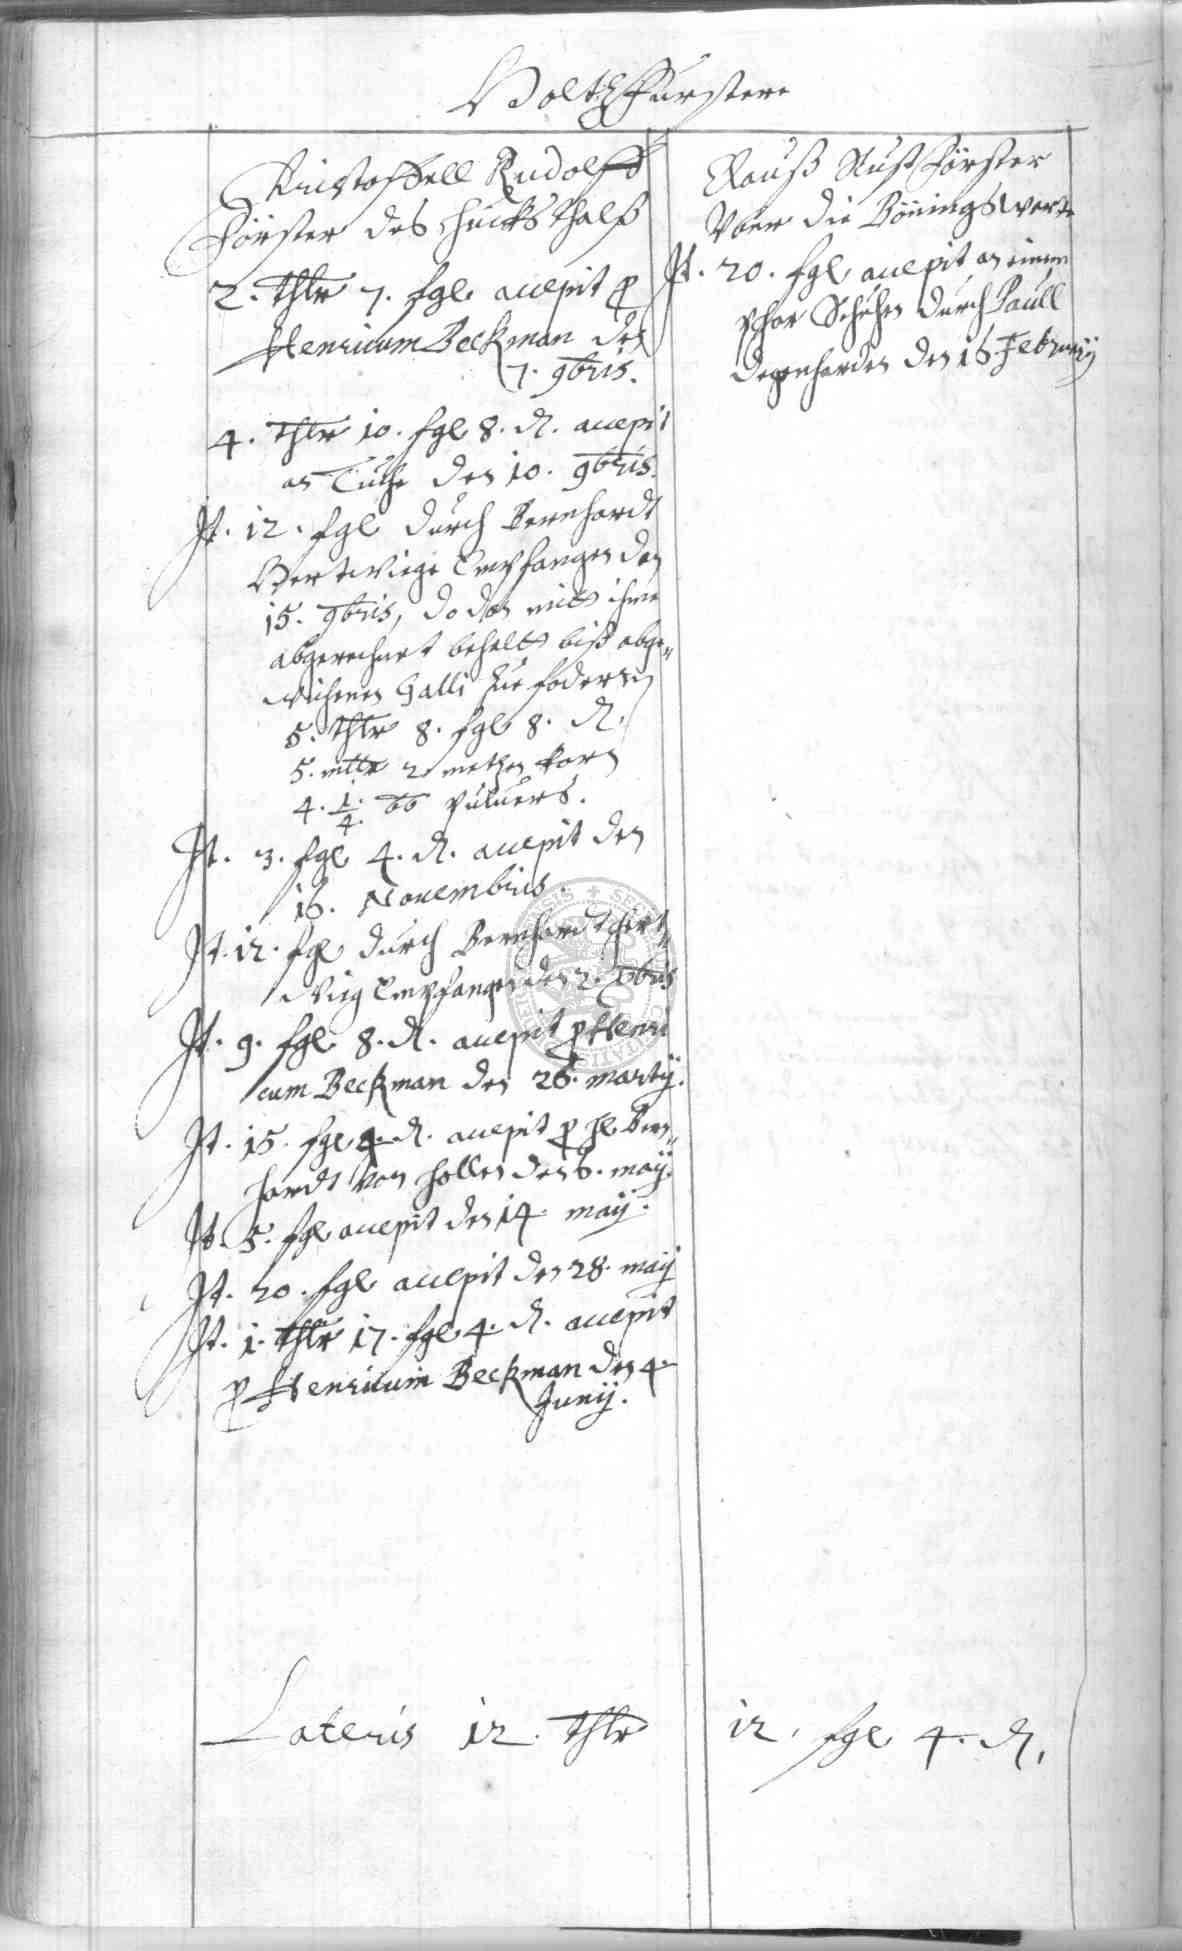 Holtzfurstere
Christoffell Rudolff
Förster des Hucksthalß
2. thlr 7. fgl accepit p
Henricum Beckman den
7. 9bris.
4. thlr 10. fgl 8. d. accepit
an Tuche den 10. 9bris.
It. 12. fgl durch Bernhardt
Hertwiege Empfangen den
15. 9bris, do dan mitt ihme
abgerechnet behelt biß abge„
wichenen Galli zue fodern
5. thlr 8. fgl 8. d.
5. mltr 2 metzen korn
4. 1/4. lb puluers.
It. 3. fgl 4. d. accepit den
16. Nouembris.
It. 12. fgl durch Bernhardt Hert„
wieg Empfangen den 2. Xbris
It. 9. fgl 8. d. accepit p Henri
cum Beckman den 26. martij.
It. 15. fgl 4. d. accepit p Bern„
hardt von Hollen den 6. maij.
It. 5. fgl accepit den 14. maij.
It. 20. fgl accepit den 28. maij
It. 1. thlr 17. fgl 4. d. accepit
p Henricum Beckman den 4.
Junij.
Clauß Förster
Vber die Bönings
It. 20. fgl accepit an einem
phar Schuhen durch Paull
Degenharden den 16. Februarij
Lateris 12. thlr 12. fgl 4. d.